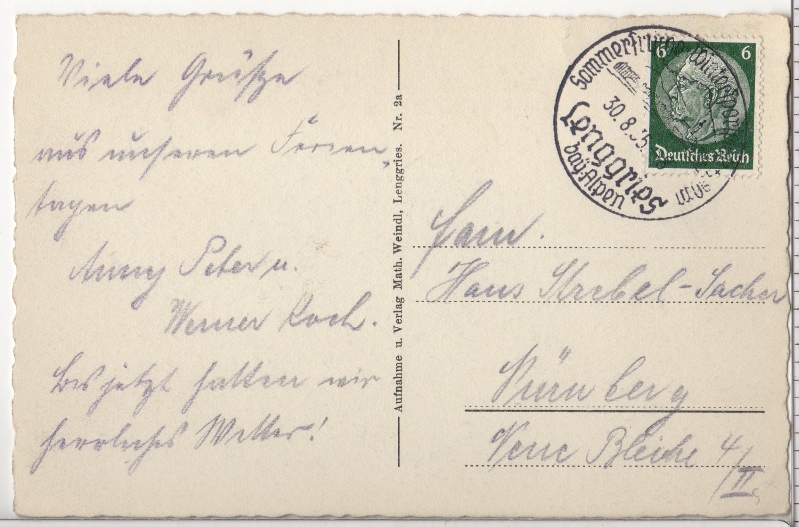 Viele Grüße
aus unseren Ferien„
tagen
Anny Peter u.
Werner Koch.
Bis jetzt hatten wir
herrliches Wetter!
Aufnahme u. Verlag Math. Weindl, Lenggries. Nr. 2a
Sommerfrische Wintersport
30.8.
Lenggries
bay. Alpen
6 6
Deutsches Reich
Fam.
Hans Strebel-Sacher
Nürnberg
Neue Bleiche 4/II